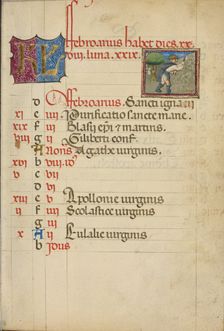 KL Februarius habet dies xx
viij. luna. xxix.
d Februarius. Sancti ignacii
xi e iiij Purificatio sancte marie.
xix f iij Blasij epi et martiris
viij g ij Giliberti conf.
A Nonis Agathe virginis
xvi b viij id9
v c vij
d vi
xiii e v Apollonie virginis
ii f iiij Scolastice virginis
g iij
x A ij Eulalie virginis
b Idus